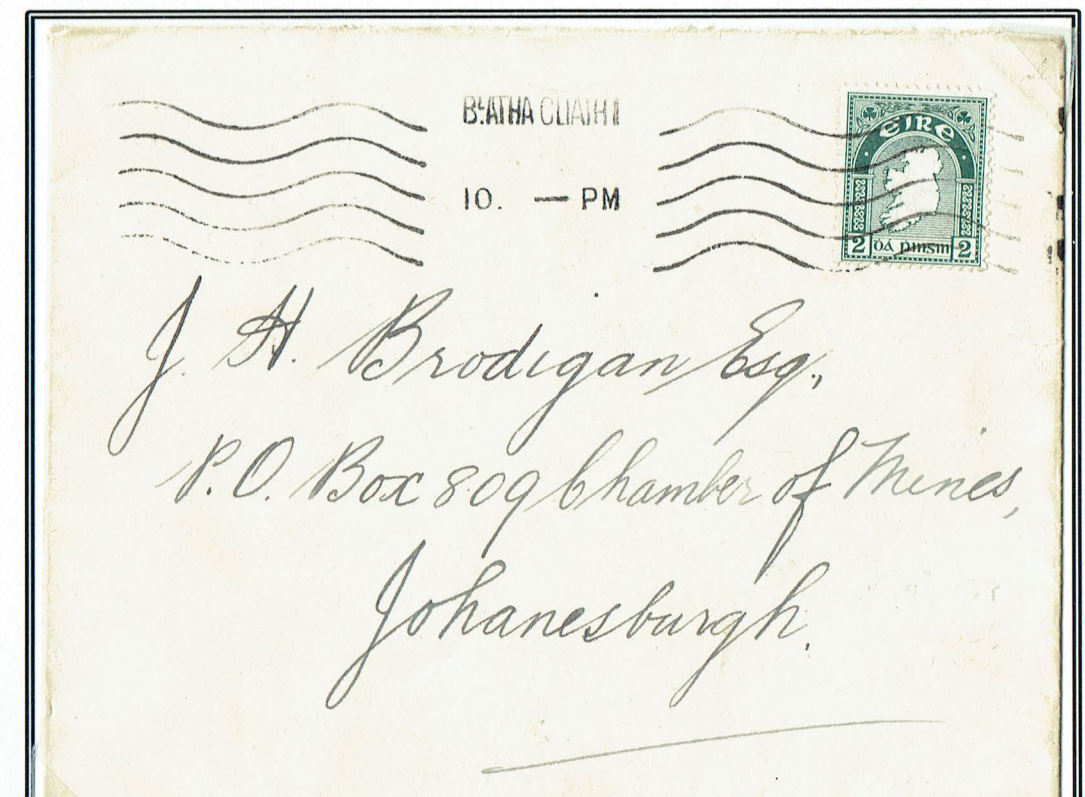 BᴸᴬATHA CLIATH 1
10. — PM
EIRE
2 DÁ PINGIN 2
J. H. Brodigan Esq.,
P.O. Box 809 Chamber of Mines,
Johanesburgh.